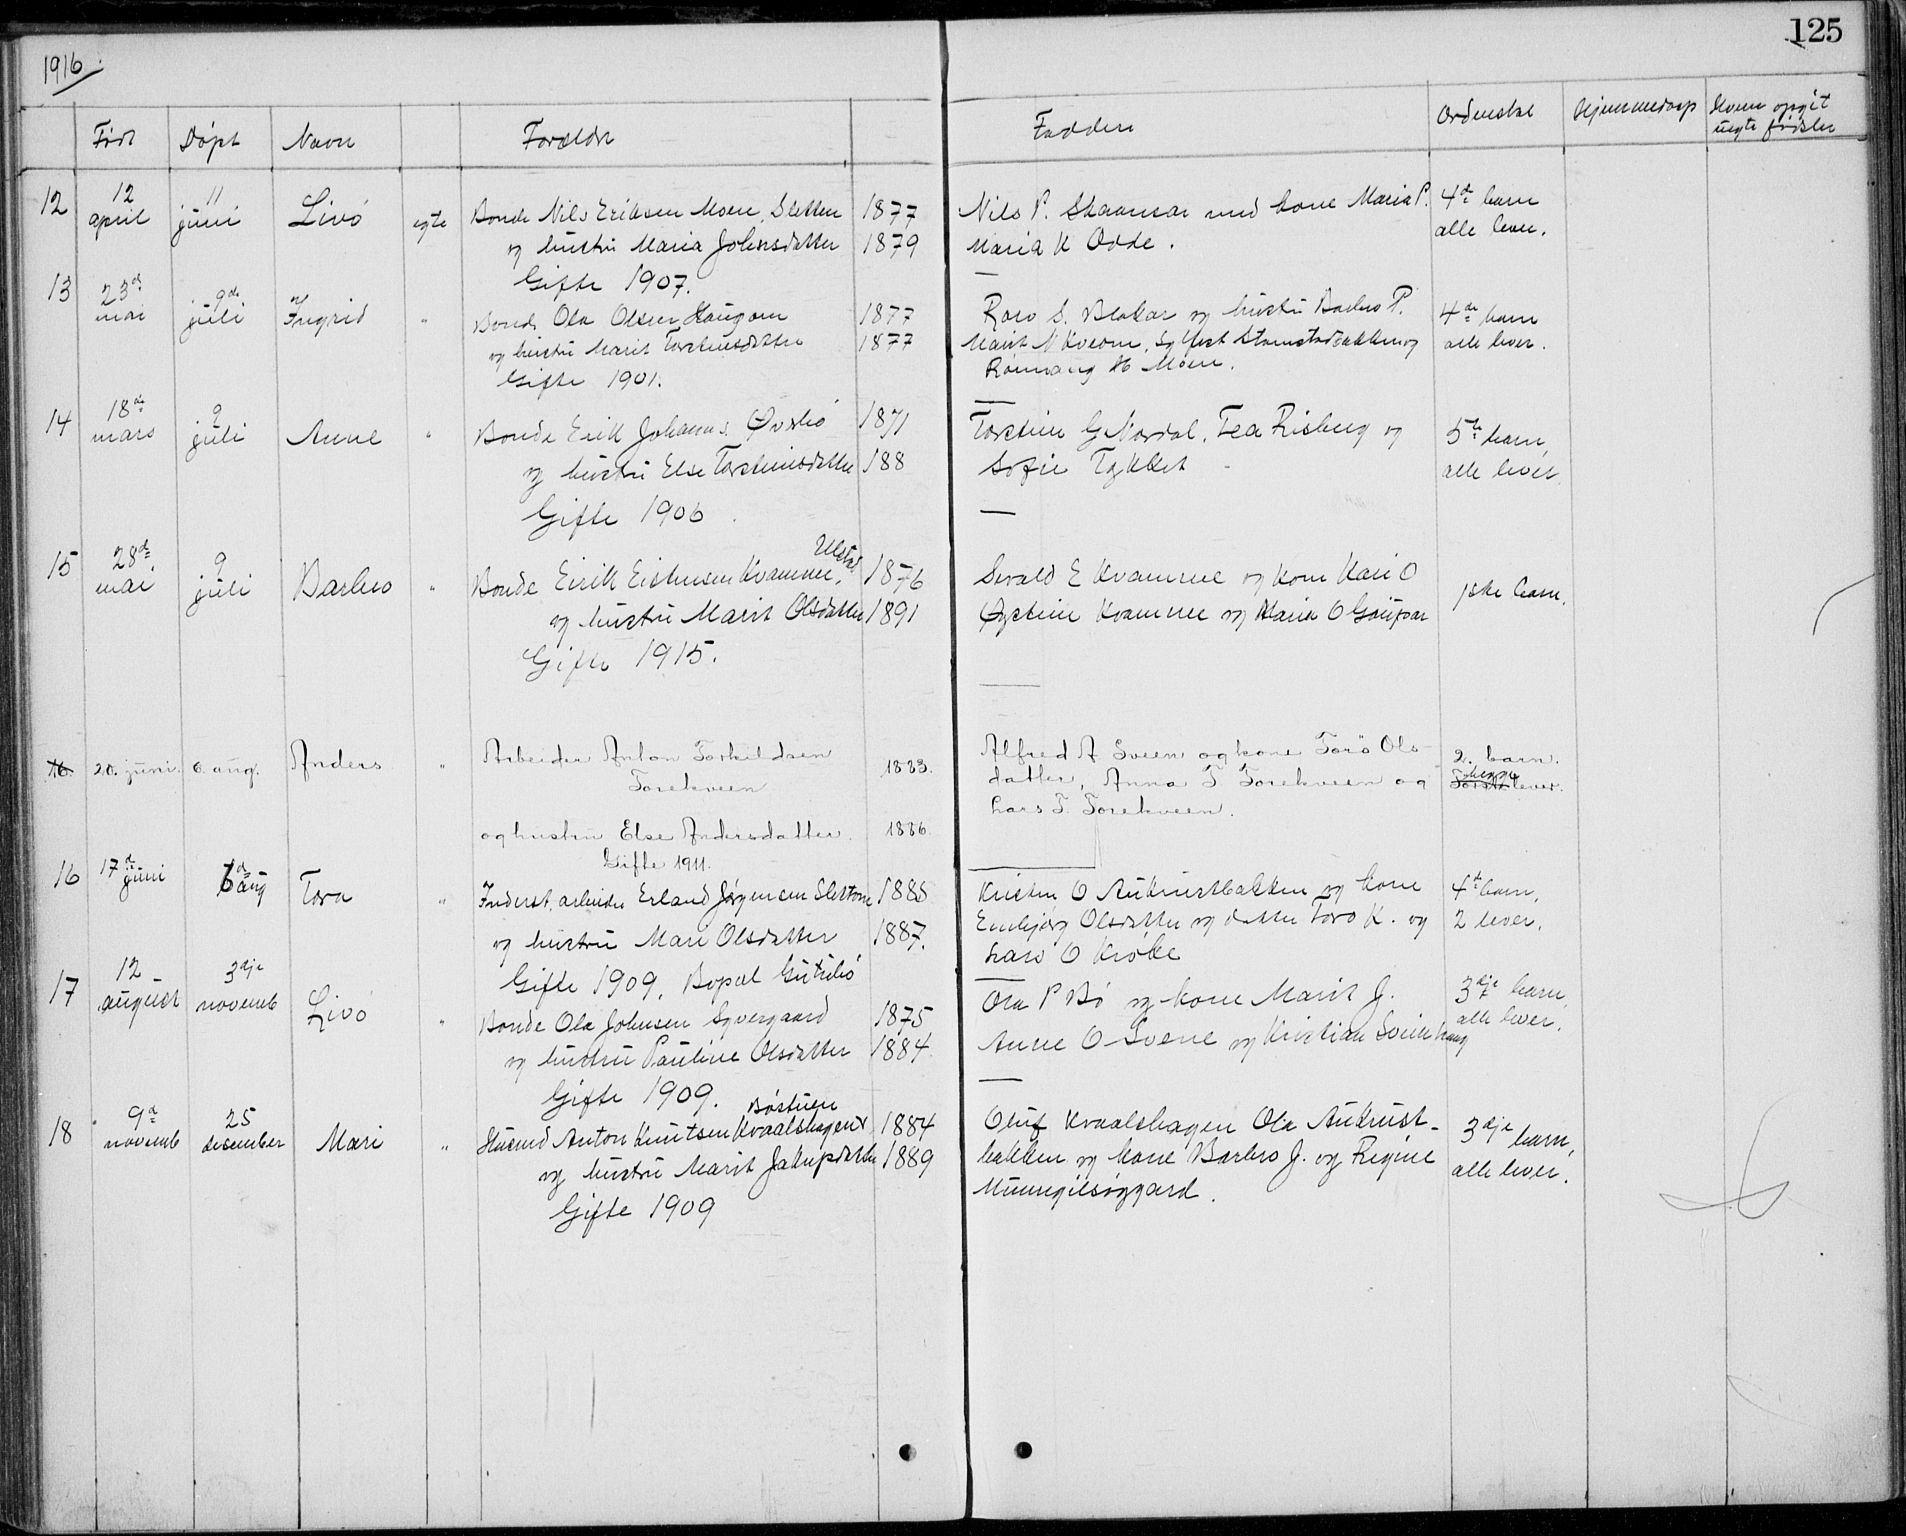 125
1916
Født Døpt Navn Forældre Faddere Ordenstal Hjemmedaap Hvem opgit
uegte fødsler
12 12 april 11 juni Livó egte Bonde Nils Eriksen Moen, Sletten 1877
og hustru Maria Johnsdatter 1879
Gifte 1907.
Nils P. Skaamar med kone Maria P.
Maria K Odde.
4de barn
alle lever.
13 23de mai 9de juli Ingrid " Bonde Ola Olsen Haugom 1877
og hustru Marit Torsteinsdatter 1877
Gifte 1901.
Roar S. Blakar og hustru Barbro P.
Marit N Kveom, Sylfest Stamstadbakken og
Rønnaug H Moen.
4de barn
alle lever.
14 18de mars 9 juli Anne " Bonde Erik Johannes. Øvrlió 1871
og hustru Else Torsteinsdatter 188
Gifte 1906.
Torstein G Nordal, Tea Risberg og
Sofie Tykket
5te barn,
alle lever.
15 28de mai 9 juli Barbro " Bonde Eirik Eistensen Kvamme, Ulstad 1876
og hustru Marit Olsdatter 1891
Gifte 1915.
Sevald E Kvamme og kone Kari O
Øystein Kvamme og Maria O Gaupar
1ste barn.
16. 20. juni. 6. aug. Anders " Arbeider Anton Torkildsen 1883.
Torekveen
og hustru Else Andersdatter. 1886.
Gifte 1911.
Alfred A Sveen og kone Torø Ols-
datter, Anna T. Torekveen og
Lars T. Torekveen.
2. barn.
begge lever.
16 17de juni 6de aug Tora " Inderst, arbeider Erland Jørgensen Slettom 1885
og hustru Mari Olsdatter 1887.
Gifte 1909. Bopæl Gutulió
Kristen O Aukrustbakken og kone
Embjørg Olsdatter og datter Toro K. og
Lars O Kroke
4de barn,
2 lever.
17 12 august 3dje novemb Livó " Bonde Ola Johnsen Syvergaard 1875
og hustru Pauline Olsdatter 1884
Gifte 1909.
Ola P Bó og kone Marit J.
Anne O Svene og Kristian Sveinhaug
3dje barn,
alle lever.
18 9de novemb 25 desember Mari " Husmd Anton Knutsen Kvaalshagen Bóstuen 1884
og hustru Marit Jakupsdatter 1889
Gifte 1909
Oluf Kvaalshagen Ola Aukrust-
bakken og kone Barbro J. og Regine
3dje barn,
alle lever.